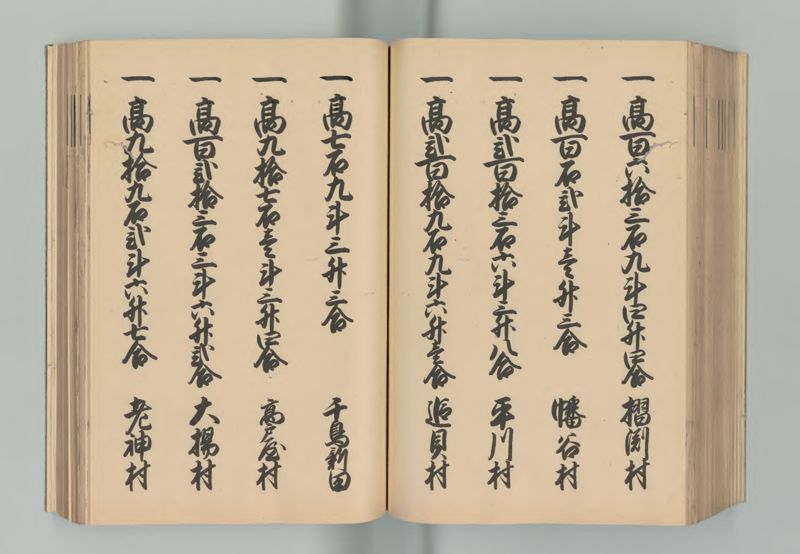 一 高百六拾三石九斗四升四合 摺渕村
一 高百石弐斗壱升三合 幡谷村
一 高弐百拾三石六斗三升八合 平川村
一 高弐百拾九石九斗六升壱合 追貝村
一 高七石九斗三升三合 千鳥新田
一 高九拾七石壱斗三升四合 高戸屋村
一 高百弐拾三石三斗六升弐合 大楊村
一 高九拾九石弐斗六升七合 老神村